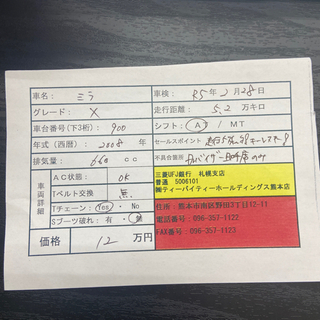 車名: ミラ
車検: R5年2月28日
グレード: X
走行距離: 5.2万キロ
車台番号(下3桁) 900
シフト: A / MT
年式(西暦): 2008年
セールスポイント
排気量: 660 cc
不具合箇所
車両詳細
AC状態: OK
Tベルト交換 無.
Tチェーン: Yes・No
Sブーツ破れ: 有・無
価格 12 万円
三菱UFJ銀行 札幌支店
普通 5006101
㈱ティーバイティーホールディングス熊本店
住所:熊本市南区野田3丁目12-11
電話番号: 096-357-1122
FAX番号: 096-357-1123